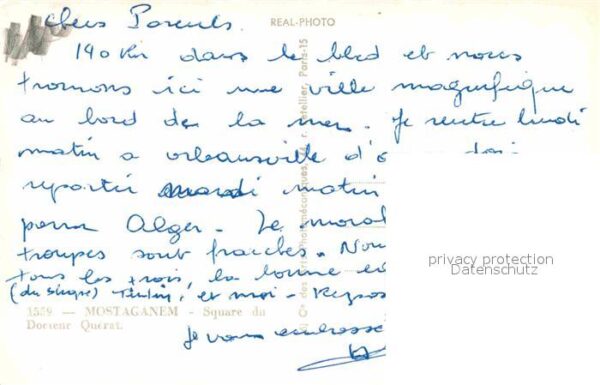 chers Parents.
REAL-PHOTO
140 km dans le bled et nous
trouvons ici une ville magnifique
au bord de la mer. Je rentre lundi
matin a orleansville d'
repartir mardi matin
pour Alger. Le moral
troupes sont fraiches. Nou
tous les trois, la bonne
(du singe) Tintin, et moi - Repos
1559 — MOSTAGANEM - Square du
Docteur Quérat.
Je vous embrasse
privacy protection
Datenschutz